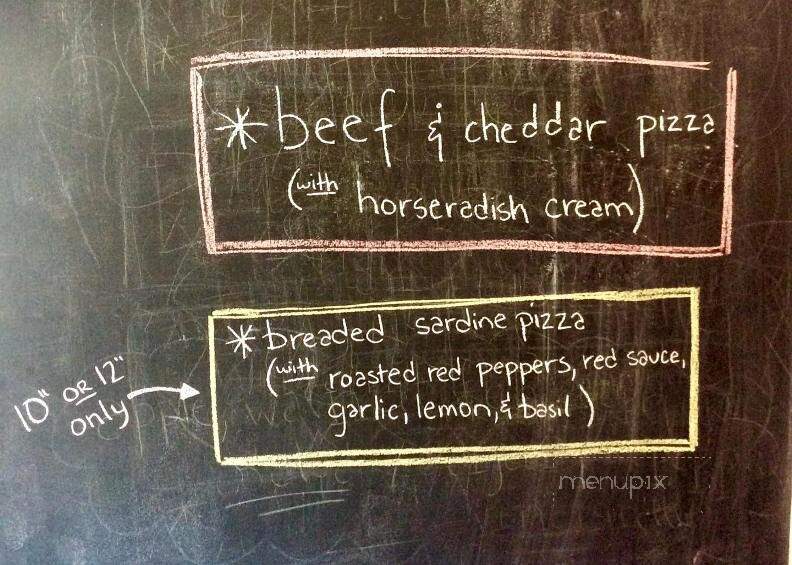 *beef & cheddar pizza
(with horseradish cream)
*breaded sardine pizza
(with roasted red peppers, red sauce,
garlic, lemon, & basil)
10" OR 12"
only
menupix